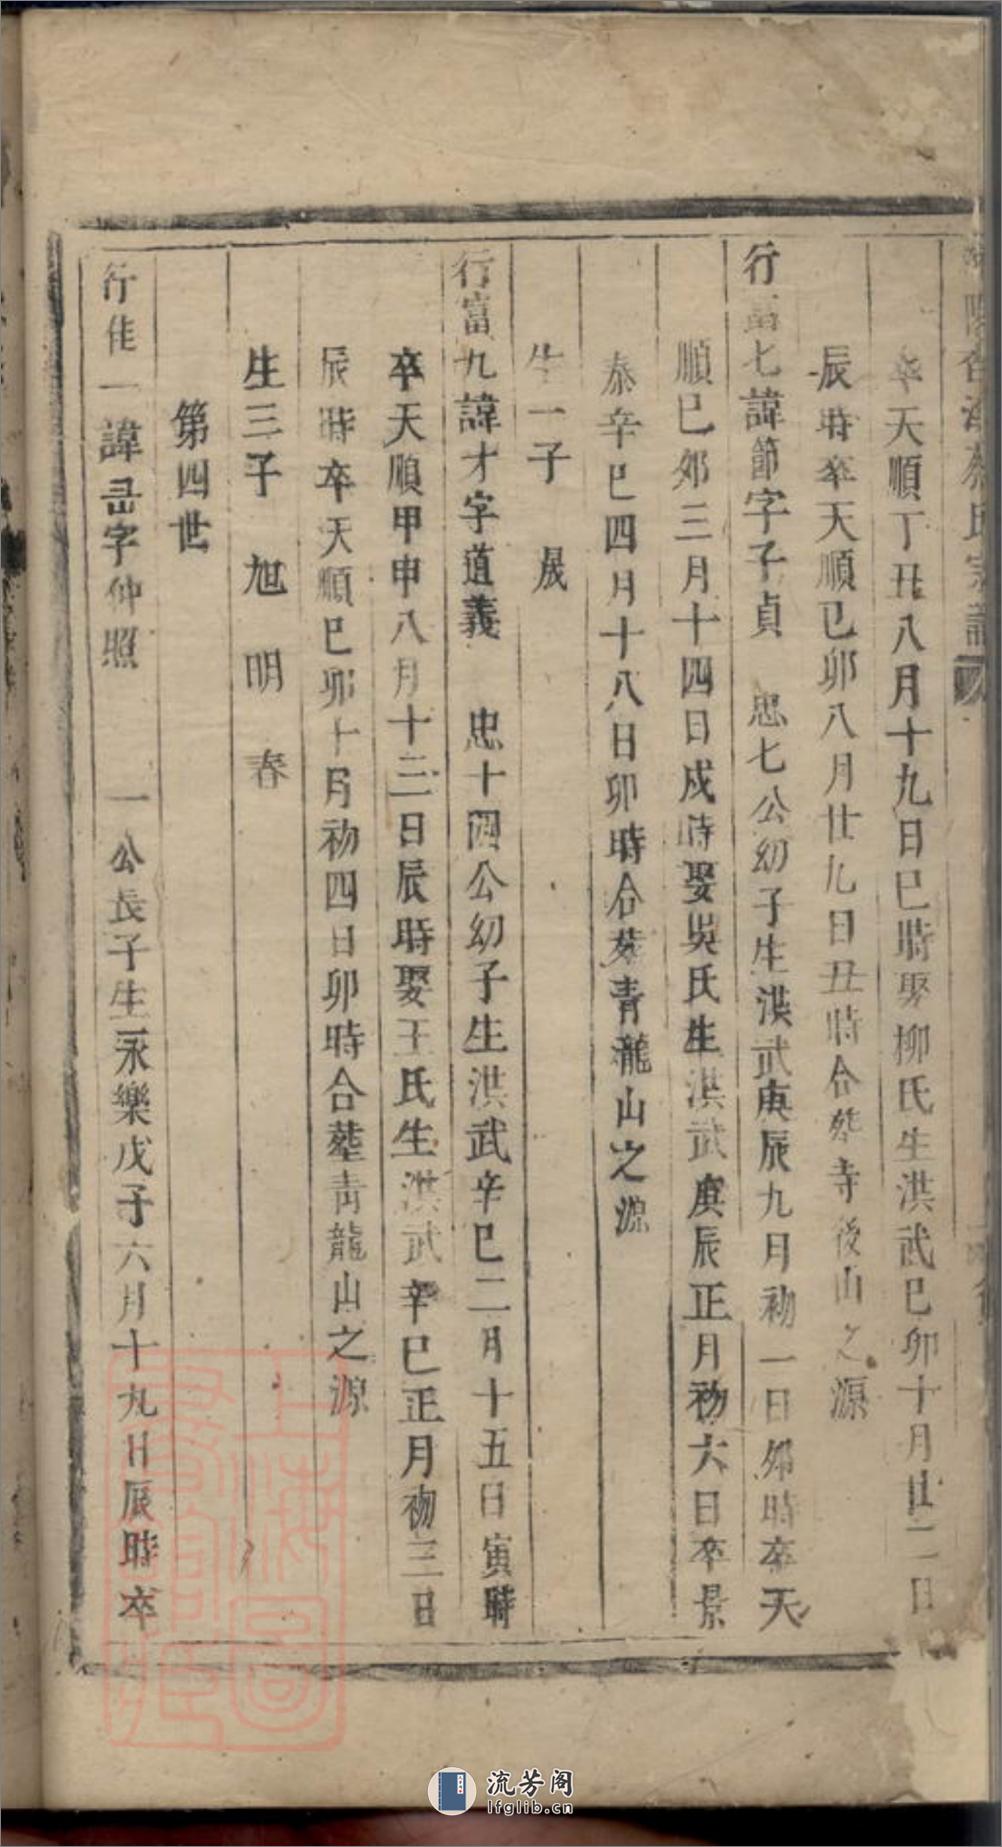 卒天順丁丑八月十九日巳時娶柳氏生洪武己卯十月廿二日
辰時卒天順己卯八月廿九日丑時合葬寺後山之源
行富七諱節字子貞　忠七公幼子生洪武庚辰九月初一日卯時卒天
順己卯三月十四日戌時娶吳氏生洪武庚辰正月初六日卒景
泰辛巳四月十八日卯時合葬青龍山之源
生一子　晟
行富九諱才字道義　忠十四公幼子生洪武辛巳二月十五日寅時
卒天順甲申八月十二日辰時娶王氏生洪武辛巳正月初三日
辰時卒天順己卯十月初四日卯時合塟青龍山之源
生三子　旭　明　春
第四世
行佳一諱字仲照　一公長子生永樂戊子六月十九日辰時卒
上海圖書館藏
流芳阁
lfglib.cn